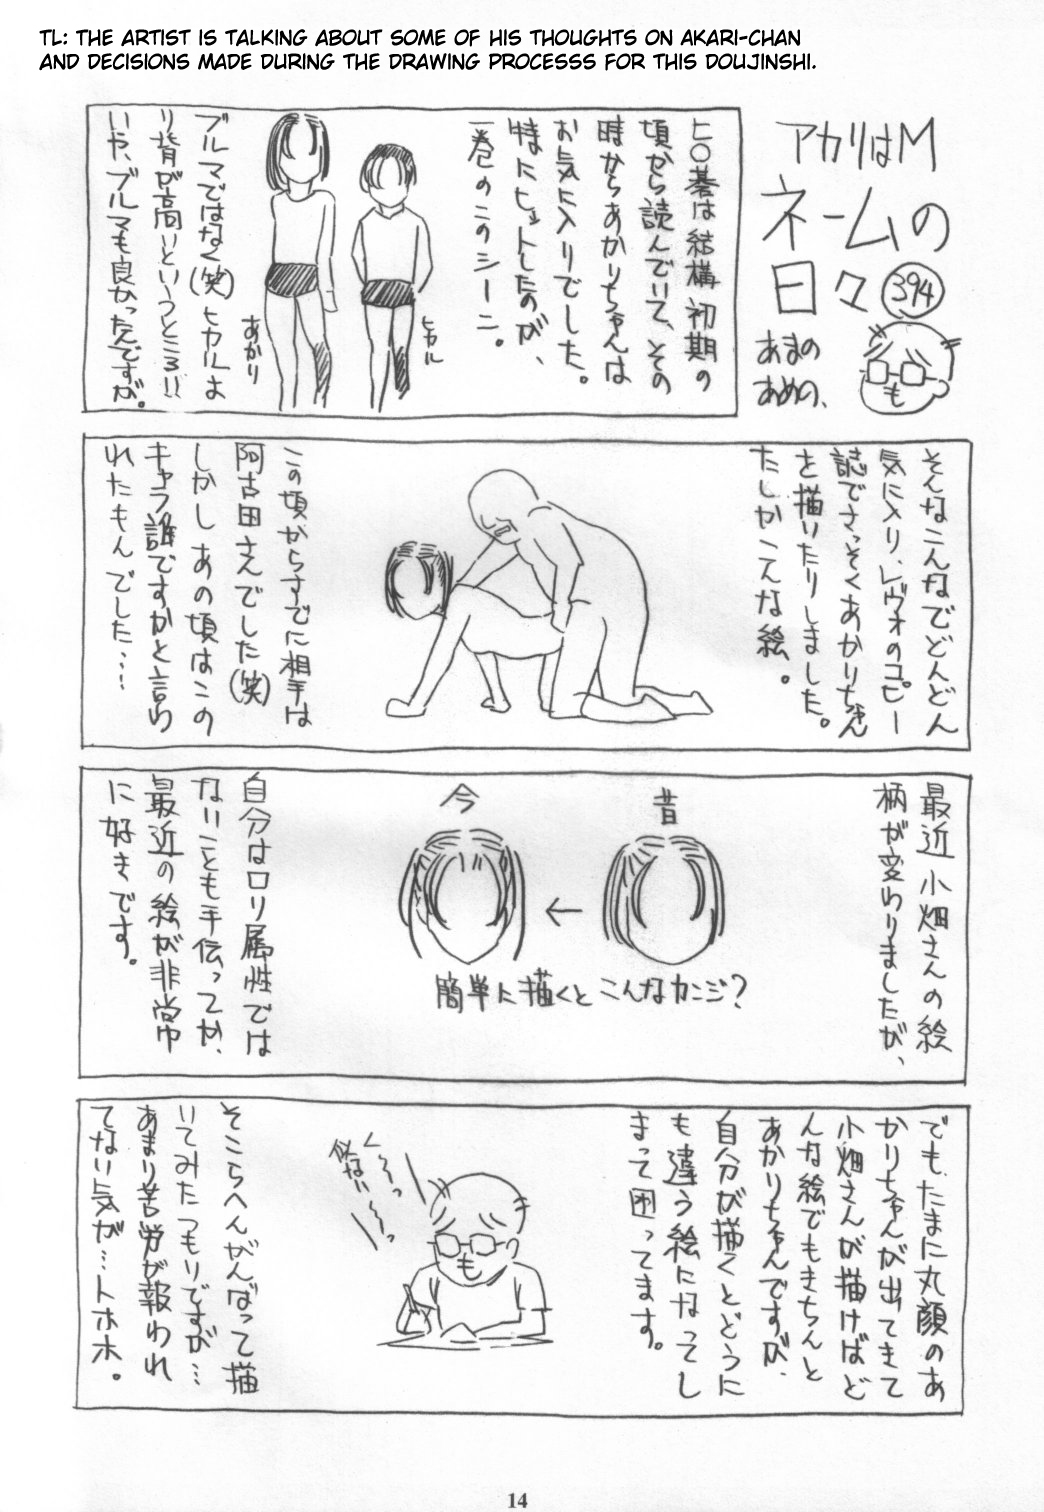 TL: THE ARTIST IS TALKING ABOUT SOME OF HIS THOUGHTS ON AKARI-CHAN
AND DECISIONS MADE DURING THE DRAWING PROCESSS FOR THIS DOUJINSHI.
アカリはM
ネームの
日々
394
あまの
あめの、
ヒ○碁は結構初期の
頃から読んでいて、その
時からあかりちゃんは
お気に入りでした。
特にヒットしたのが、
一巻のこのシーン。
ヒカル
あかり
ブルマではなく(笑)ヒカルよ
り背が高いというところ!!
いや、ブルマも良かったんですが。
そんなこんなでどんどん
気に入り、レヴォのコピー
誌でさっそくあかりちゃん
を描いたりしました。
たしかこんな絵。
この頃からすでに相手は
阿古田さんでした(笑)
しかしあの頃はこの
キャラ誰ですかと言わ
れたもんでした……
最近小畑さんの絵
柄が変わりましたが、
昔
今
←
簡単に描くとこんなカンジ?
自分はロリ属性では
ないことも手伝ってか、
最近の絵が非常
に好きです。
でも、たまに丸顔のあ
かりちゃんが出てきて
小畑さんが描けばど
んな絵でもきちんと
あかりちゃんですが、
自分が描くとどうに
も違う絵になってし
まって困ってます。
く〜〜っ
似ない〜〜っ
そこらへんがんばって描
いてみたつもりですが…
あまり苦労が報われ
てない気が…トホホ。
14